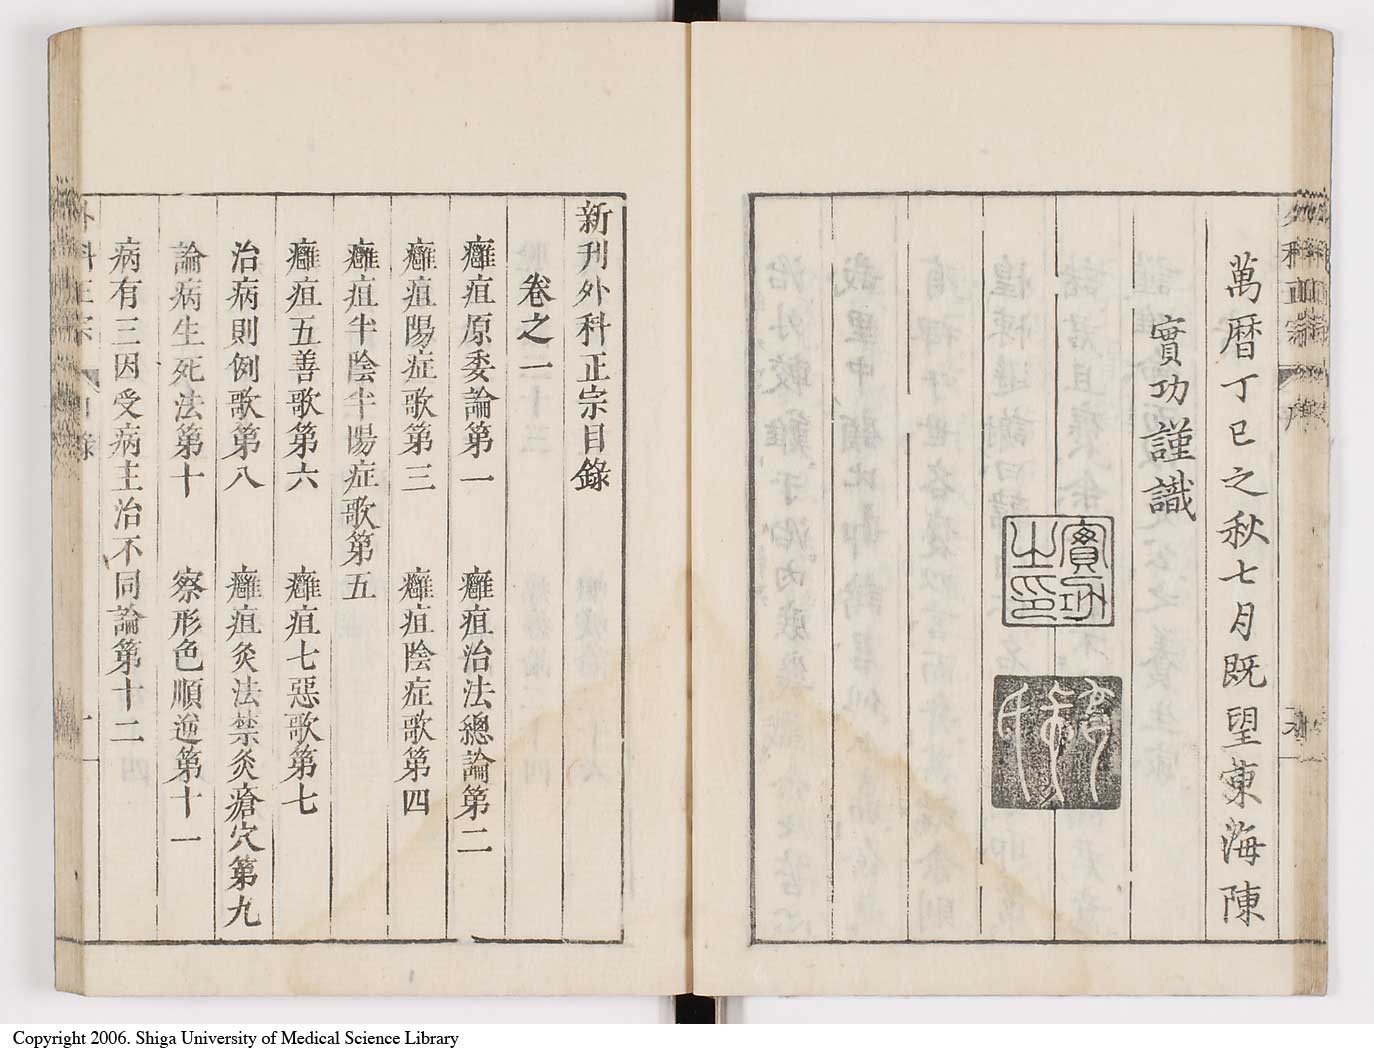 萬曆丁巳之秋七月既望東海陳
實功謹識
實功之印
新刊外科正宗目錄
卷之一
癰疽原委論第一 癰疽治法總論第二
癰疽陽症歌第三 癰疽陰症歌第四
癰疽半陰半陽症歌第五
癰疽五善歌第六 癰疽七惡歌第七
治病則例歌第八 癰疽灸法禁灸瘡穴第九
論病生死法第十 察形色順逆第十一
病有三因受病主治不同論第十二
Copyright 2006. Shiga University of Medical Science Library